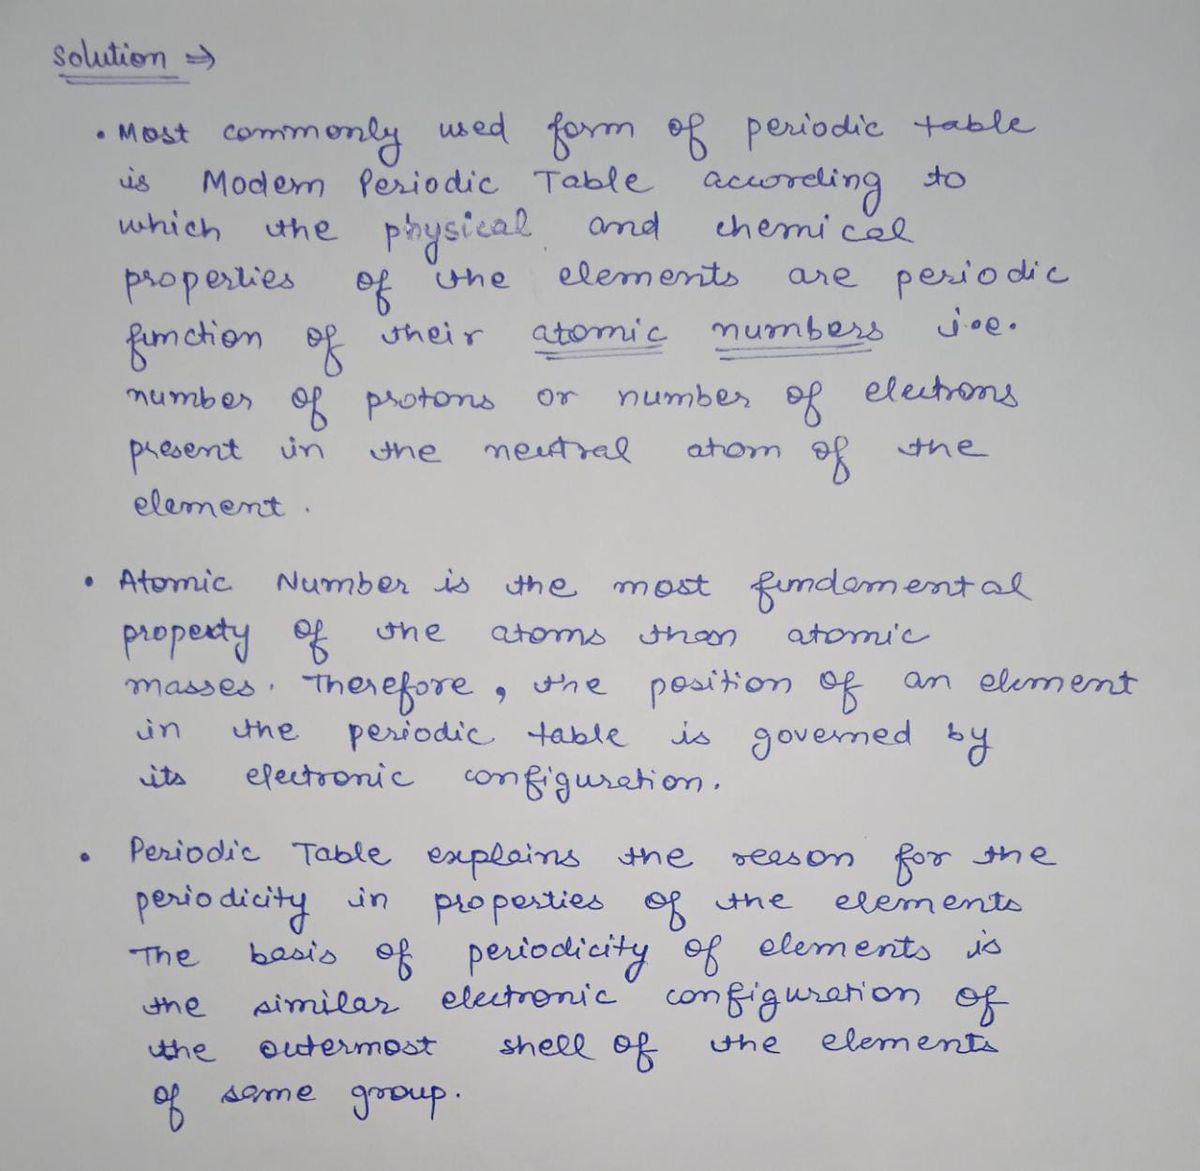 Solution ⇒
• Most commonly used form of periodic table
is Modern Periodic Table according to
which the physical and chemical
properties of the elements are periodic
function of their atomic numbers i.e.
number of protons or number of electrons
present in the neutral atom of the
element.
• Atomic Number is the most fundamental
property of the atoms than atomic
masses. Therefore, the position of an element
in the periodic table is governed by
its electronic configuration.
• Periodic Table explains the reason for the
periodicity in properties of the elements
The basis of periodicity of elements is
the similar electronic configuration of
the outermost shell of the elements
of same group.